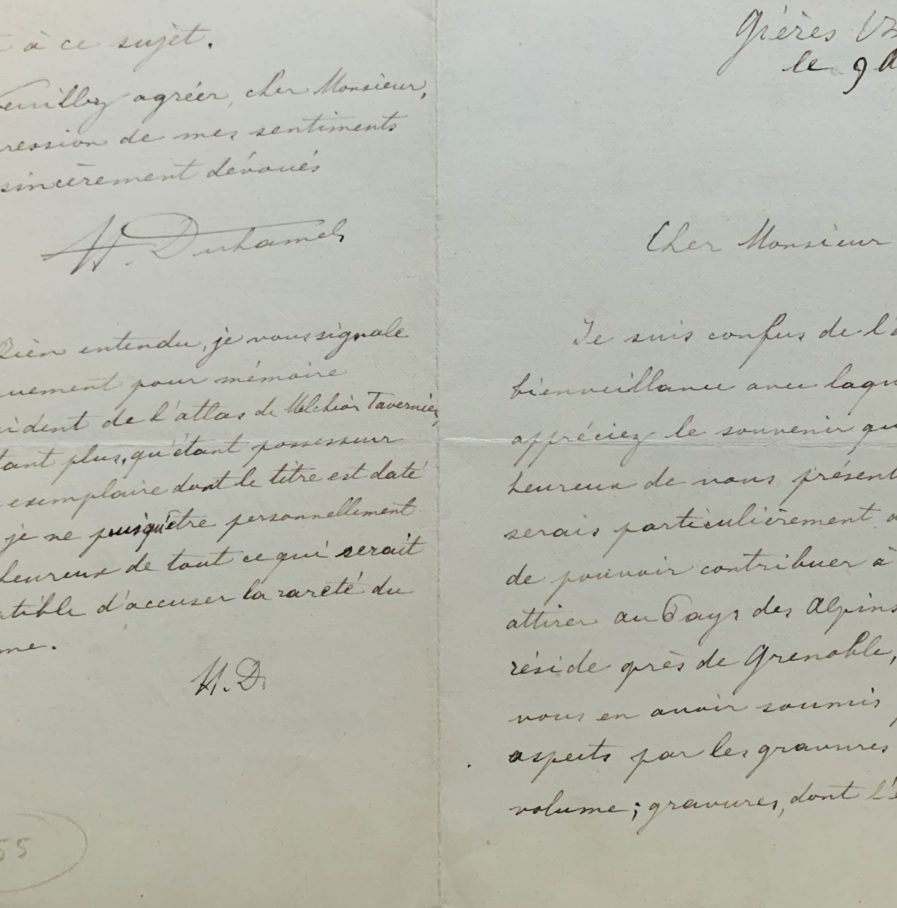 à ce sujet.
agréer, cher Monsieur,
de mes sentiments
sincèrement dévoués
H. Duhamel
Bien entendu, je vous signale
pour mémoire
de l'atlas de Melchior Tavernier,
plus, qu'étant possesseur
exemplaire dont le titre est daté
je ne puis qu'être personnellement
heureux de tout ce qui serait
d'accuser la rareté du
H. D.
55
Gières
le 9
Cher Monsieur
Je suis confus de
bienveillance avec
appréciez le souvenir
heureux de vous
serais particulièrement
de pouvoir contribuer à
attirer au Pays des
réside près de Grenoble,
vous en avoir soumis
aspects par les gravures
volume; gravures, dont